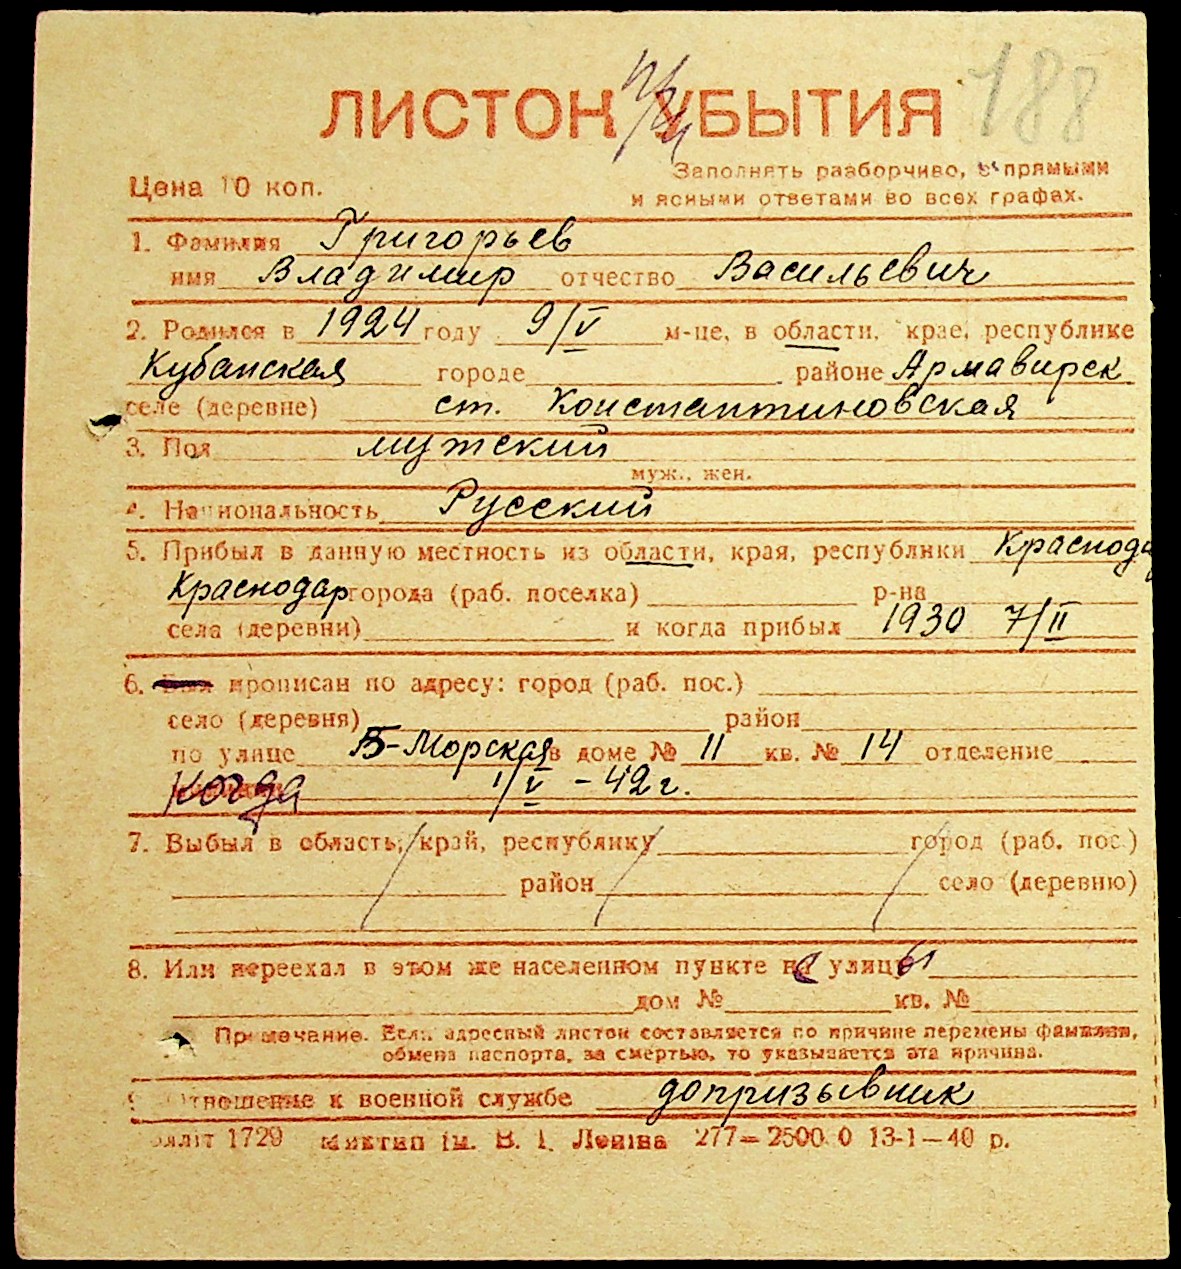 188
ЛИСТОК УБЫТИЯ
Цена 10 коп.
Заполнять разборчиво, с прямыми
и ясными ответами во всех графах.
1. Фамилия Григорьев
имя Владимир отчество Васильевич
2. Родился в 1924 году 9/V м-це, в области, крае, республике
Кубанская городе районе Армавирск
селе (деревне) ст. Константиновская
3. Пол мужский
муж., жен.
4. Национальность Русский
5. Прибыл в данную местность из области, края, республики Краснода
Краснодар города (раб. поселка) р-на
села (деревни) и когда прибыл 1930 7/II
6. прописан по адресу: город (раб. пос.)
село (деревня) район
по улице Б-Морская в доме № 11 кв. № 14 отделение
когда 1/V - 42 г.
7. Выбыл в область, край, республику город (раб. пос.)
район село (деревню)
8. Или переехал в этом же населенном пункте с улицы
дом № кв. №
Примечание. Если адресный листок составляется по причине перемены фамилии,
обмена паспорта, за смертью, то указывается эта причина.
9. Отношение к военной службе допризывник
1729 Миктип ім. В. І. Леніна 277—2500.0 13-1—40 р.